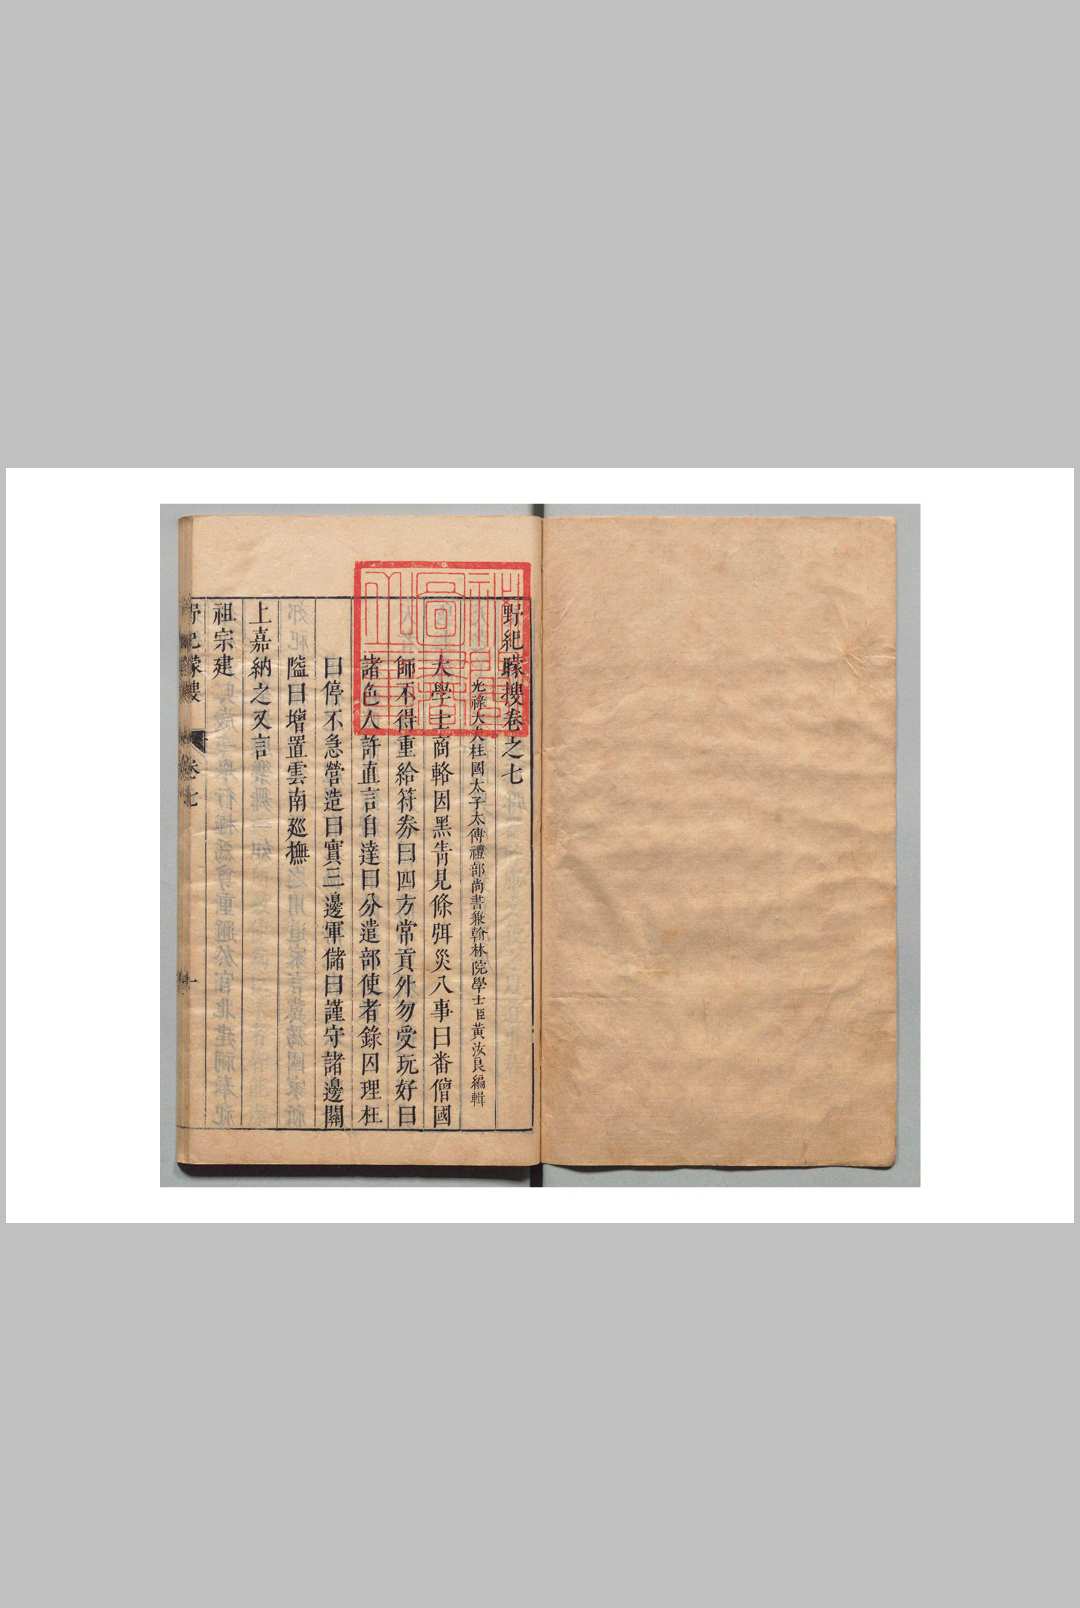 野紀矇搜卷之七
光祿大夫柱國太子太傅禮部尚書兼翰林院學士臣黃汝良編輯
大學士商輅因黑眚見條弭災八事曰番僧國
師不得重給符券曰四方常貢外勿受玩好曰
諸色人許直言自達曰分遣部使者錄囚理枉
曰停不急營造曰實三邊軍儲曰謹守諸邊關
隘曰增置雲南廵撫
上嘉納之又言
祖宗建
野紀矇搜 卷七 一